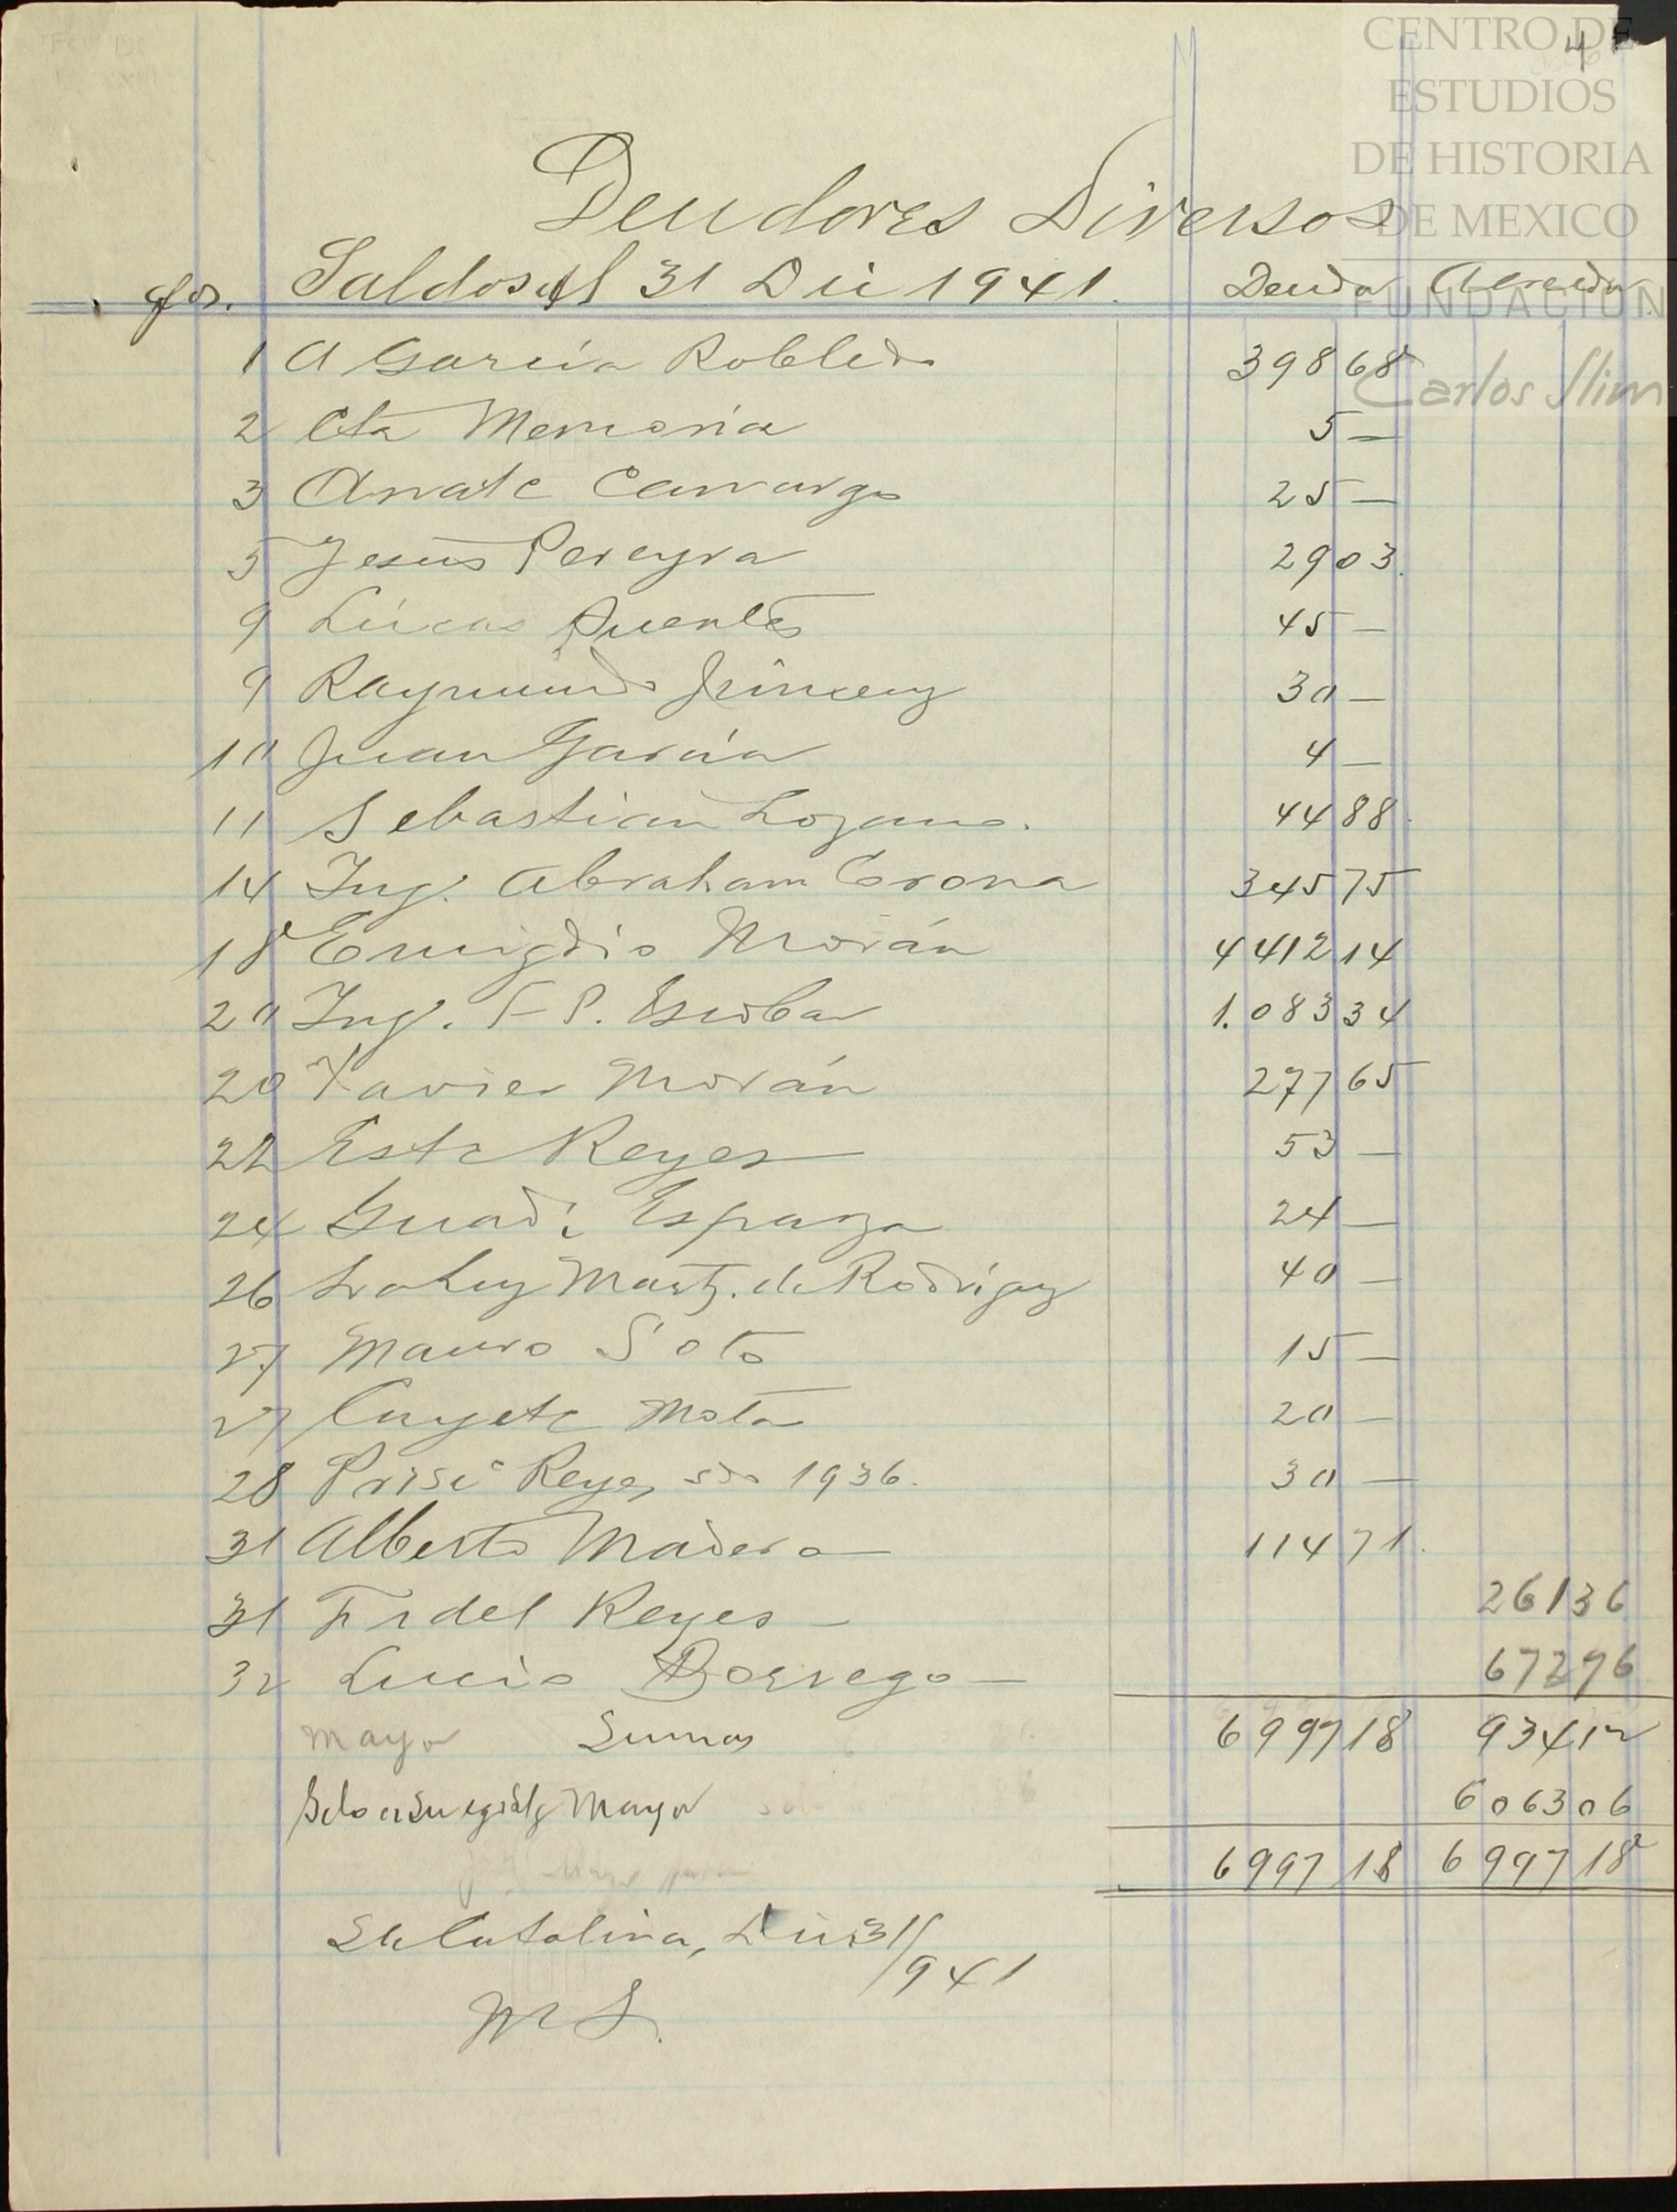 CENTRO DE
ESTUDIOS
DE HISTORIA
DE MEXICO
FUNDACION
Carlos Slim
4
Deudores Diversos
fos. Saldos al 31 Dic 1941. Deudor Acreedor
1 A Garcia Robledo 398 68
2 Cta Memoria 5 —
3 Camargo 25 —
5 Jesús Pereyra 29 03.
9 Lúcas Puentes 45 —
9 Raymundo Jimenez 30 —
10 Juan Garcia 4 —
11 Sebastian Lozano. 44 88.
14 Ing. Abraham Corona 345 75
18 Emigdio Morán 4412 14
20 Ing. F P. Escobar 1.083 34
20 Xavier Morán 277 65
22 Este Reyes 53 —
24 Guade Esparza 24 —
26 Martz. de Rodrigez 40 —
27 Mauro Soto 15 —
27 Cayetc Mota 20 —
28 Prisc Reyes sdo 1936. 30 —
31 Alberto Madero 114 71.
31 Fidel Reyes 261 36
32 Lucio Borrego 672 76
Mayor Sumas 6997 18 934 12
Mayor 6063 06
6997 18 6997 18
Sta Catalina, Dic 31/941
M S.